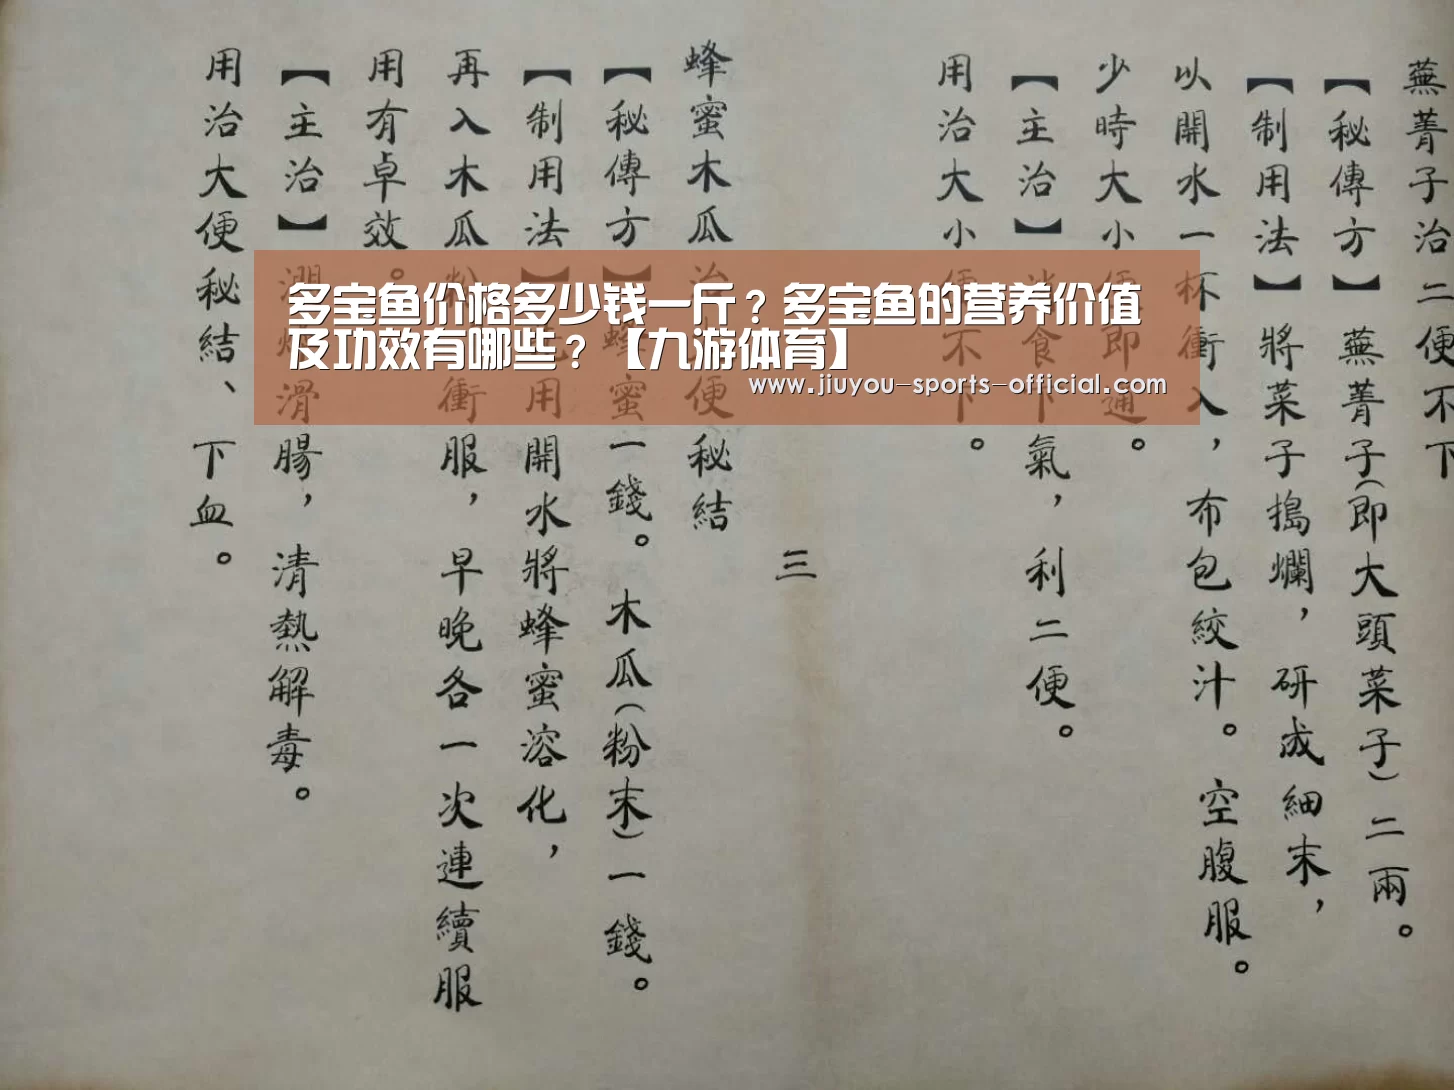 蕪菁子治二便不下
【秘傳方】蕪菁子(即大頭菜子)二兩。
【制用法】將菜子搗爛，研成細末，
以開水一杯衝入，布包絞汁。空腹服。
少時大小便即通。
【主治】食下氣，利二便。
用治大小便不下。
三
蜂蜜木瓜治大便秘結
【秘傳方】蜂蜜一錢。木瓜(粉末)一錢。
【制用法】用開水將蜂蜜溶化，
再入木瓜粉衝服，早晚各一次連續服
用有卓效。
【主治】潤滑腸，清熱解毒。
用治大便秘結、下血。
多宝鱼价格多少钱一斤？多宝鱼的营养价值
及功效有哪些？【九游体育】
www.jiuyou-sports-official.com